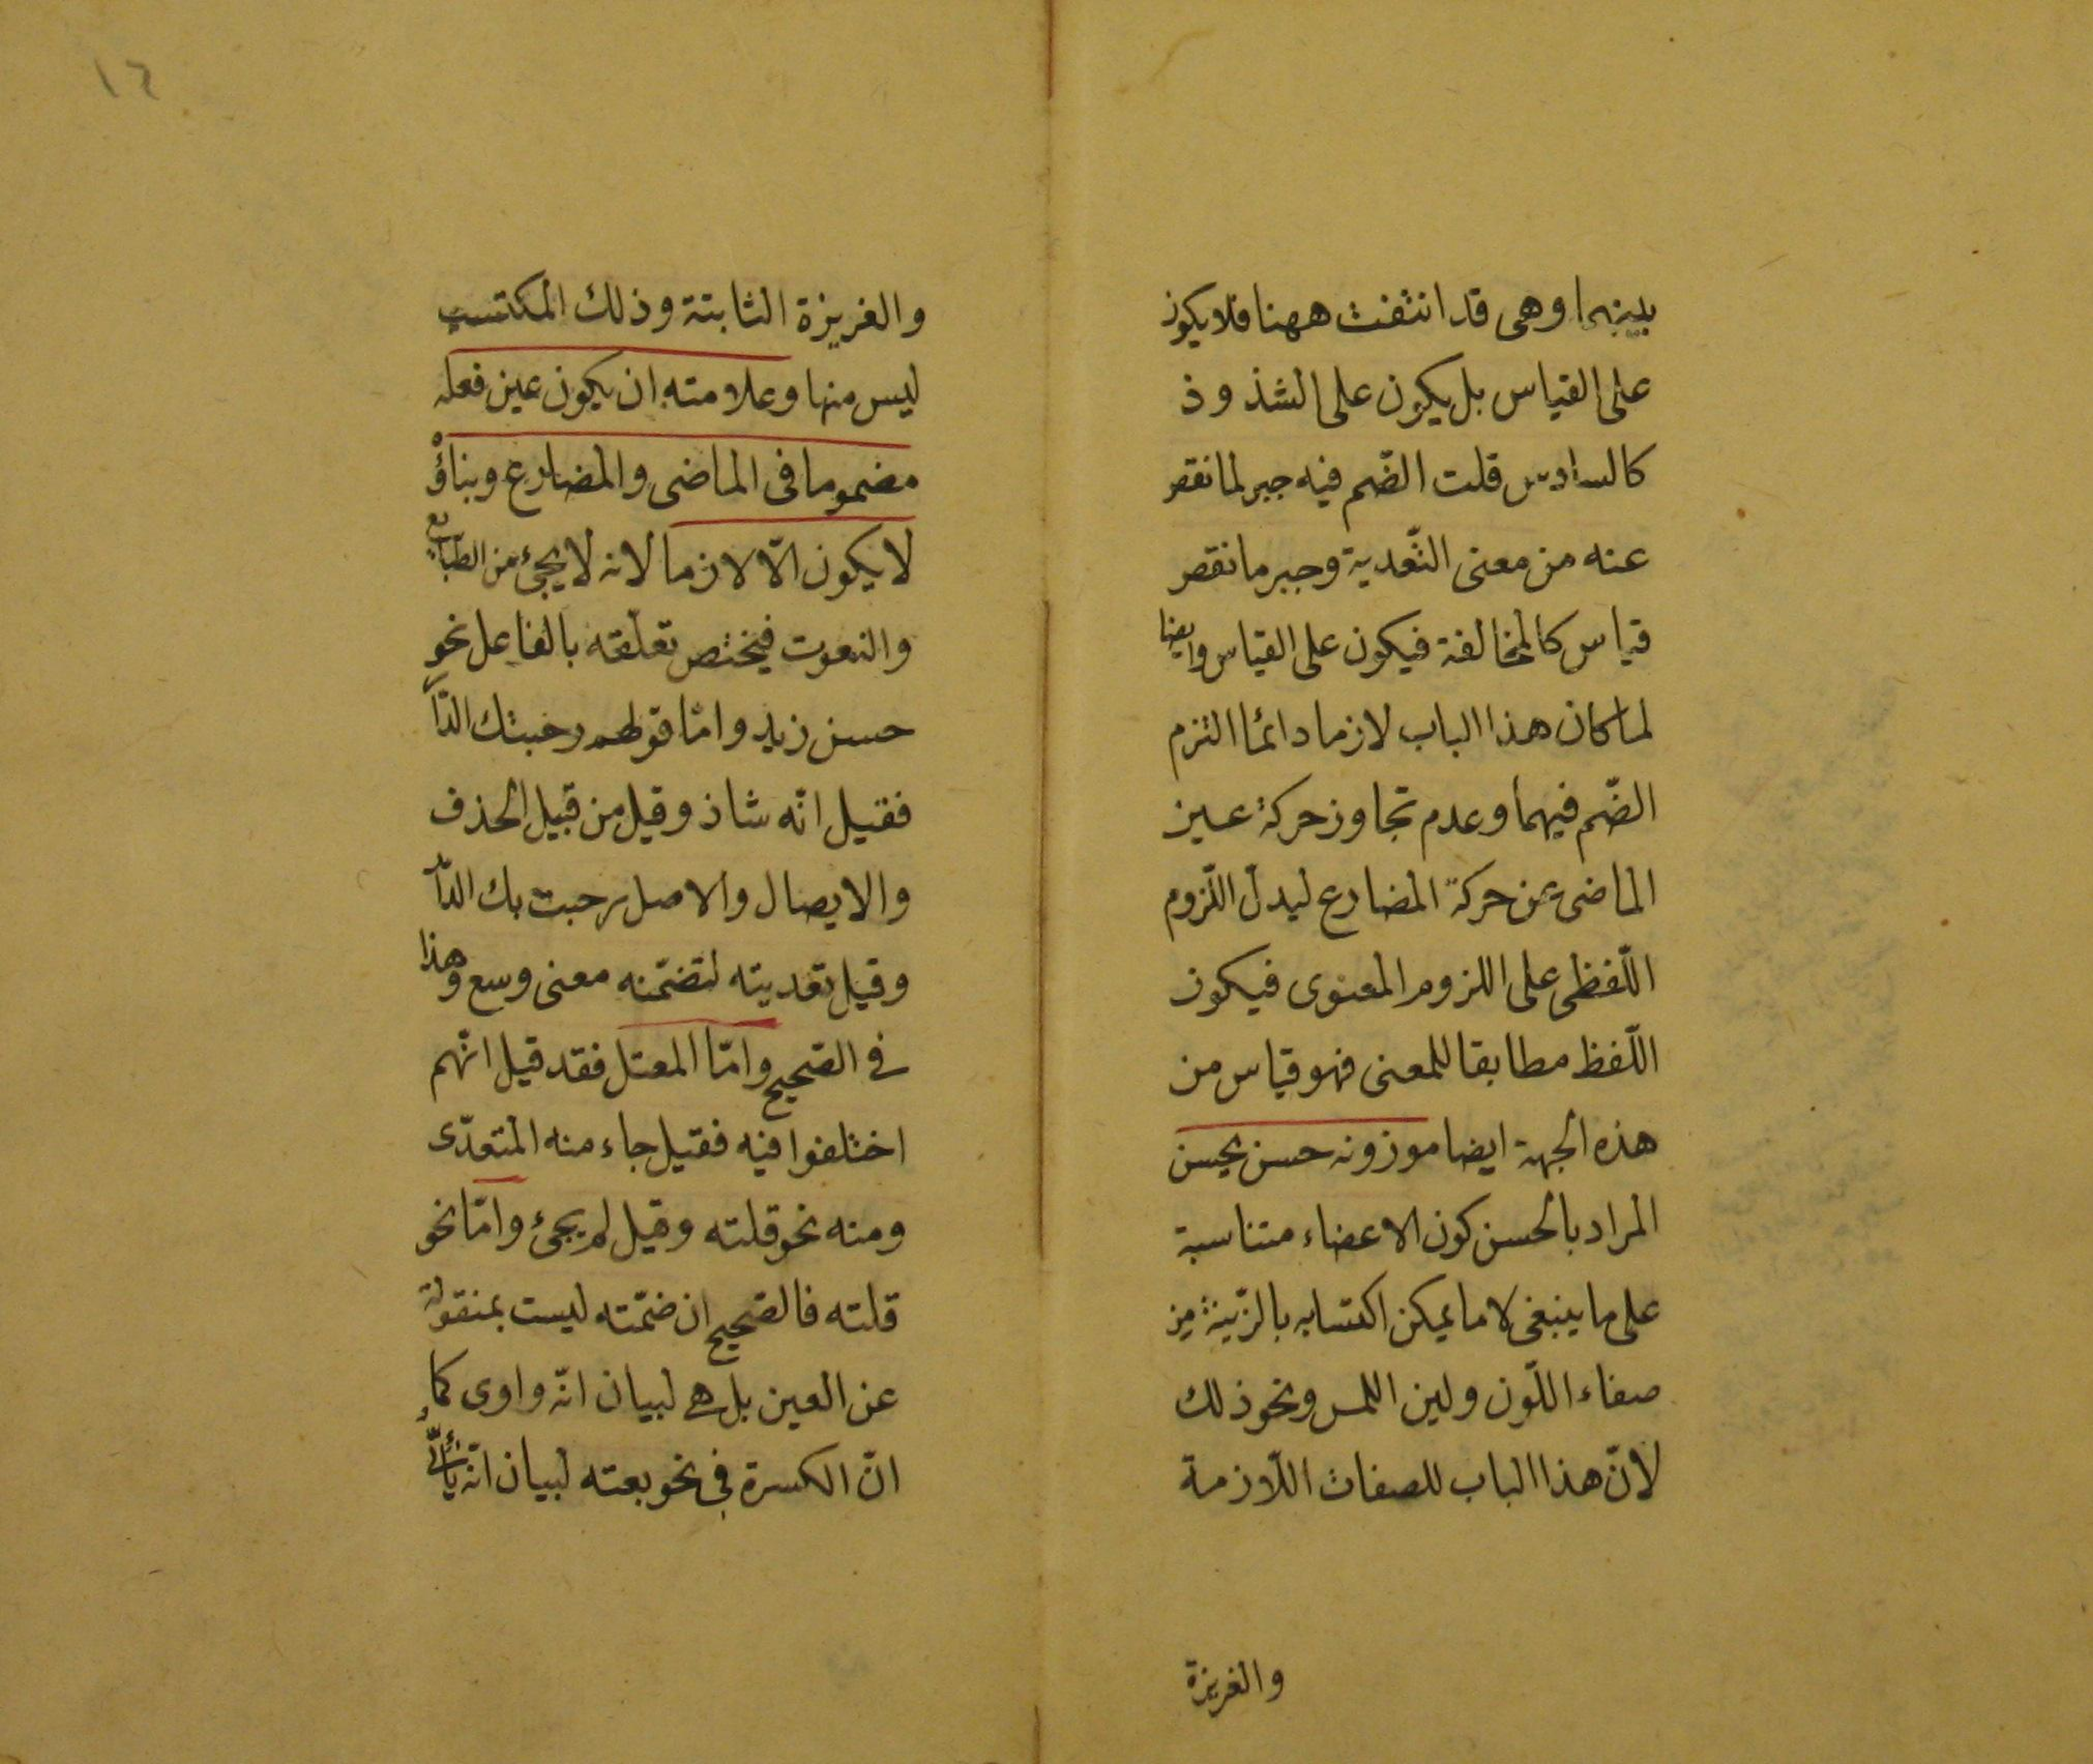 بينهما وهى قد انتفت ههنا فلا يكون
على القياس بل يكون على الشذوذ
كالسادس قلت الضّم فيه جبر لما نقص
عنه من معنى التّعدية وجبر ما نقص
قياس كالمخالفة فيكون على القياس وايضا
لما كان هذا الباب لازما دائما التزم
الضّم فيهما وعدم تجاوز حركة عين
الماضى عن حركة المضارع ليدل اللّزوم
اللّفظى على اللزوم المعنوى فيكون
اللّفظ مطابقا للمعنى فهو قياس من
هذه الجهة ايضا موزونه حسن يحسن
المراد بالحسن كون الاعضاء متناسبة
على ما ينبغى لا ما يمكن اكتسابه بالزّينة من
صفاء اللّون ولين اللمس ونحو ذلك
لانّ هذا الباب للصفات اللّازمة
والغريزة
١٦
والغريزة الثابتة وذلك المكتسب
ليس منها وعلامته ان يكون عين فعله
مضموما فى الماضى والمضارع وبناؤه
لا يكون الّا لازما لانه لا يجئ من الطّبايع
والنعوت فيختص تعلّقه بالفاعل نحو
حسن زيد وامّا قولهم رحبتك الدّار
فقيل انّه شاذ وقيل من قبيل الحذف
والايصال والاصل رحبت بك الدّار
وقيل تعديته لتضمّنه معنى وسع وهذا
فى الصّحيح وامّا المعتل فقد قيل انّهم
اختلفوا فيه فقيل جاء منه المتعدّى
ومنه نحو قلته وقيل لم يجئ وامّا نحو
قلته فالصّحيح ان ضمّته ليست بمنقولة
عن العين بل هى لبيان انّه واوى كما
انّ الكسرة فى نحو بعته لبيان انّه يائىّ